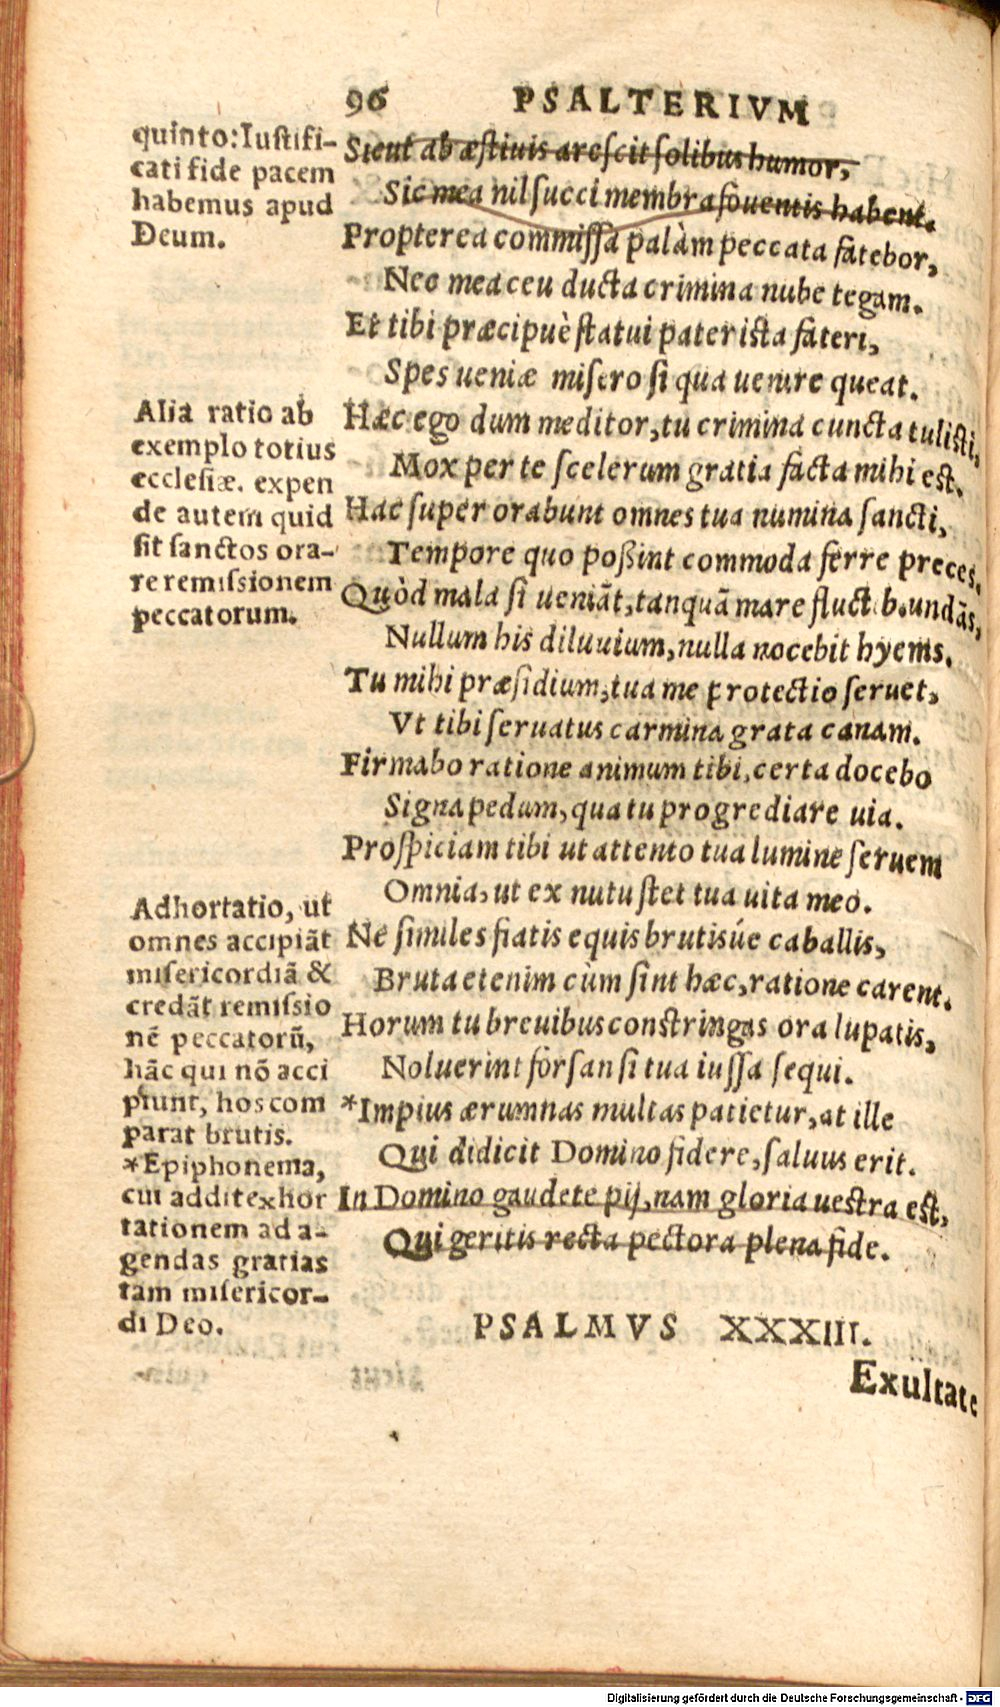 96 PSALTERIVM
quinto: Iustifi-
cati fide pacem
habemus apud
Deum.
Sicut ab æstiuis arescit solibus humor,
Sic mea nil succi membra fouentis habent.
Propterea commissa palàm peccata fatebor,
Nec mea ceu ducta crimina nube tegam.
Et tibi præcipuè statui pater ista fateri,
Spes ueniæ misero si qua uenire queat.
Alia ratio ab
exemplo totius
ecclesiæ. expen
de autem quid
sit sanctos ora-
re remissionem
peccatorum.
Hæc ego dum meditor, tu crimina cuncta tulisti,
Mox per te scelerum gratia facta mihi est.
Hac super orabunt omnes tua numina sancti,
Tempore quo poßint commoda ferre preces.
Quòd mala si ueniãt, tanquã mare fluctib. undãs,
Nullum his diluuium, nulla nocebit hyems.
Tu mihi præsidium, tua me protectio seruet,
Vt tibi seruatus carmina grata canam.
Firmabo ratione animum tibi, certa docebo
Signa pedum, qua tu progrediare uia.
Prospiciam tibi ut attento tua lumine seruem
Omnia, ut ex nutu stet tua uita meo.
Adhortatio, ut
omnes accipiãt
misericordiã &
credãt remissio
nẽ peccatorũ,
hãc qui nõ acci
piunt, hos com
parat brutis.
*Epiphonema,
cui addit exhor
tationem ad a-
gendas gratias
tam misericor-
di Deo.
Ne similes fiatis equis brutisúe caballis,
Bruta etenim cùm sint hæc, ratione carent.
Horum tu breuibus constringas ora lupatis,
Noluerint forsan si tua iussa sequi.
*Impius ærumnas multas patietur, at ille
Qui didicit Domino fidere, saluus erit.
In Domino gaudete pij, nam gloria uestra est,
Qui geritis recta pectora plena fide.
PSALMVS XXXIII.
Exultate
Digitalisierung gefördert durch die Deutsche Forschungsgemeinschaft - DFG